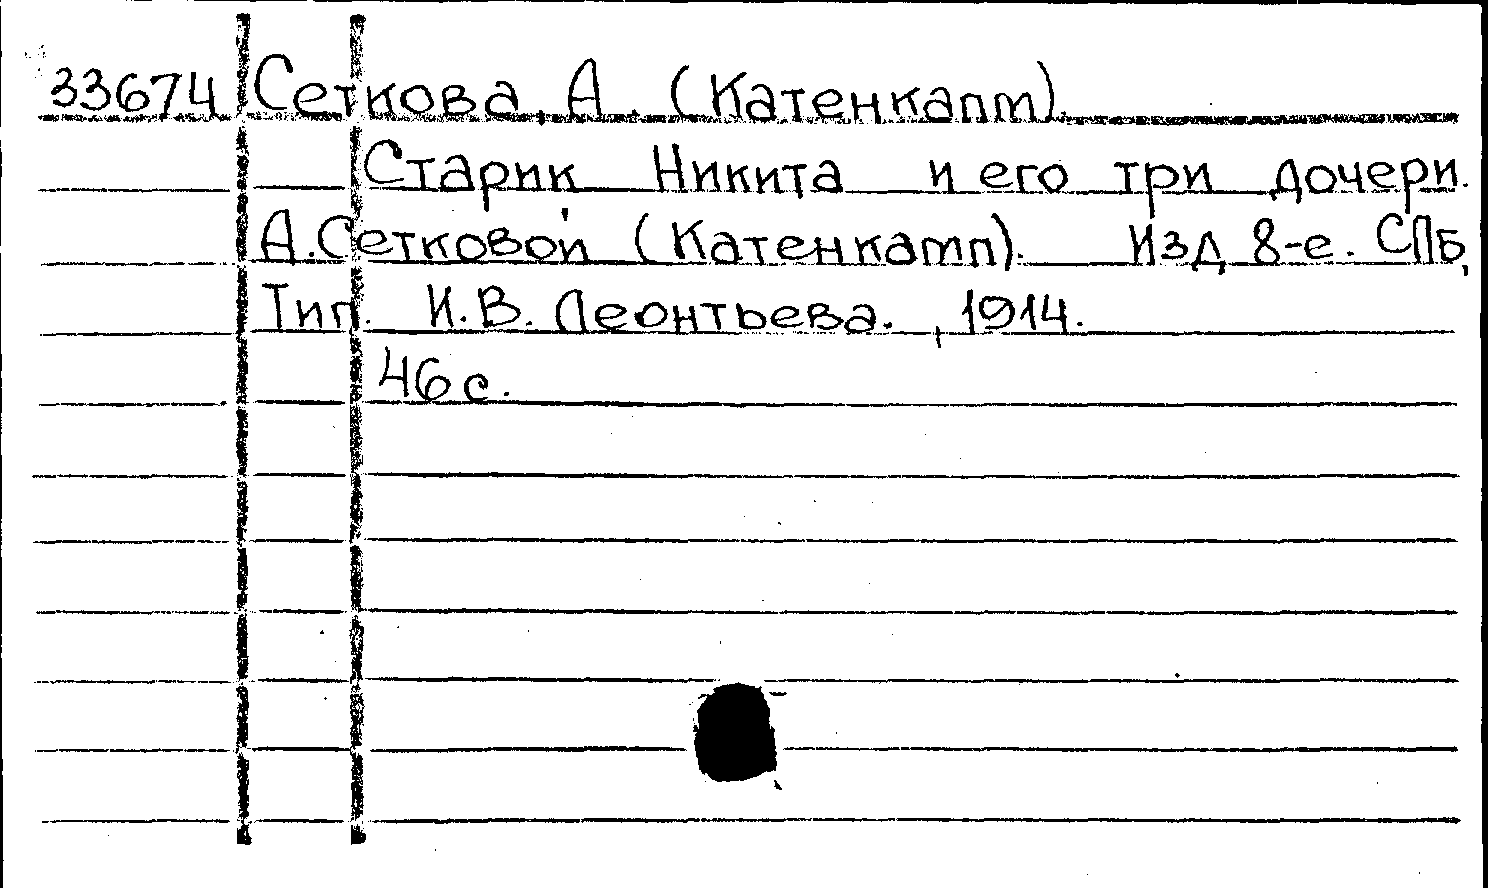 33674 Сеткова, А. (Катенкапт)
Старик Никита и его три дочери.
А. Сетковой (Катенкатп). Изд 8-е. СПб,
Тип. И.В. Леонтьева., 1914.
46 с.